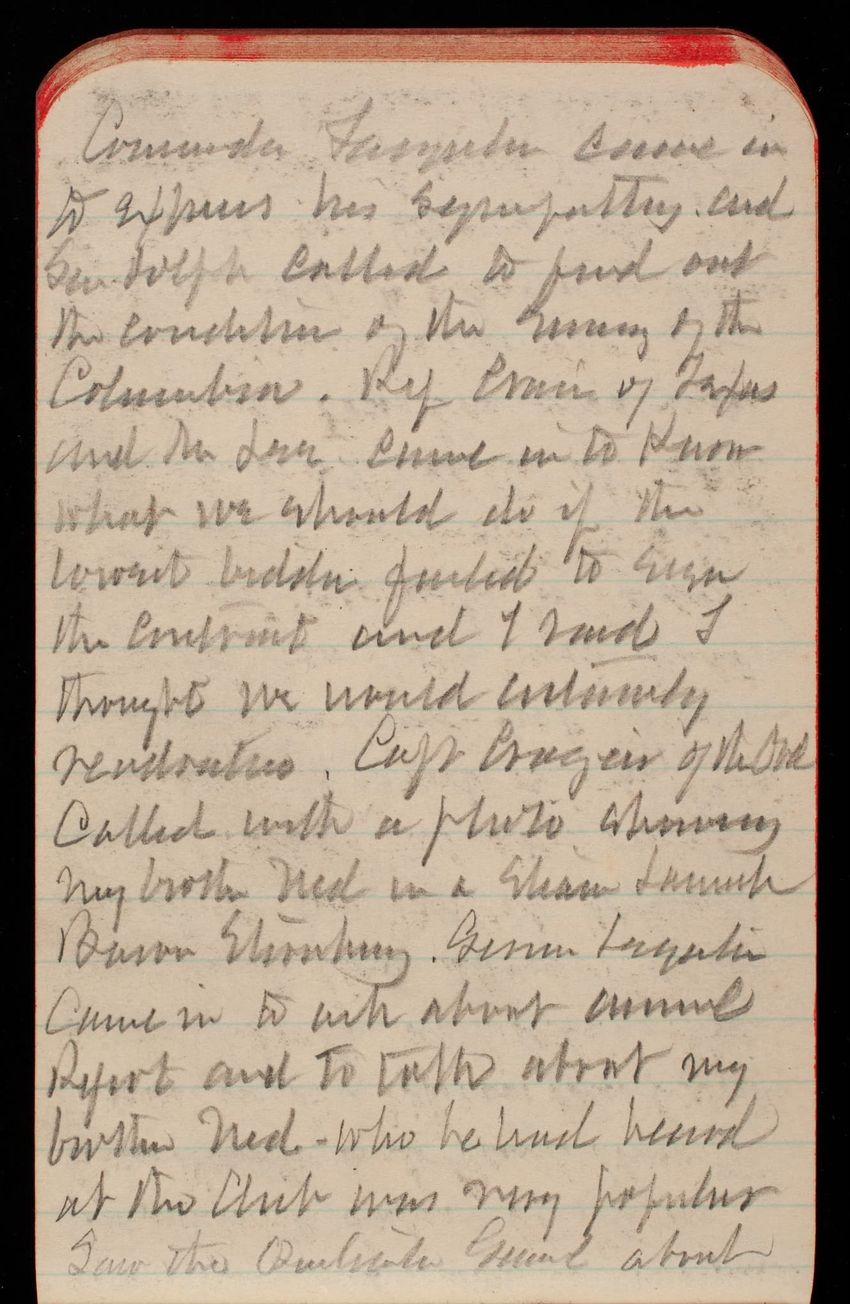 Commander came in
to express his sympathy and
Gen Dolph called to find out
the condition of the survey of the
Columbia. Rep Crain of Texas
and the came in to know
what we should do if the
lowest bidder failed to sign
the contract and I said I
thought we would certainly
readvertise. Capt of the
Called with a photo showing
my brother Ned in a Steam Launch
Baron Sternberg.
Came in to ask about annual
Report and to talk about my
brother Ned - who he had heard
at the Club was very popular
Saw the General about